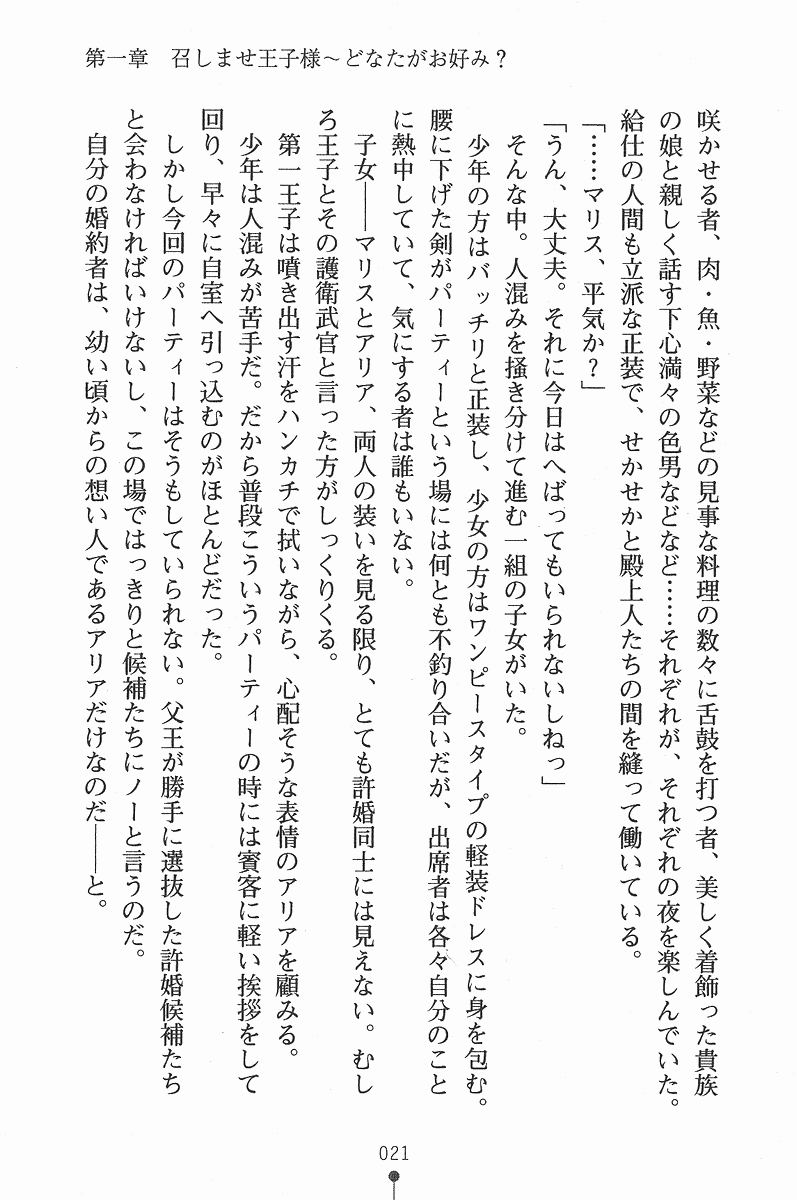 第一章　召しませ王子様～どなたがお好み？
咲かせる者、肉・魚・野菜などの見事な料理の数々に舌鼓を打つ者、美しく着飾った貴族
の娘と親しく話す下心満々の色男などなど……それぞれが、それぞれの夜を楽しんでいた。
給仕の人間も立派な正装で、せかせかと殿上人たちの間を縫って働いている。
「……マリス、平気か？」
「うん、大丈夫。それに今日はへばってもいられないしねっ」
そんな中。人混みを掻き分けて進む一組の子女がいた。
少年の方はバッチリと正装し、少女の方はワンピースタイプの軽装ドレスに身を包む。
腰に下げた剣がパーティーという場には何とも不釣り合いだが、出席者は各々自分のこと
に熱中していて、気にする者は誰もいない。
子女――マリスとアリア、両人の装いを見る限り、とても許婚同士には見えない。むし
ろ王子とその護衛武官と言った方がしっくりくる。
第一王子は噴き出す汗をハンカチで拭いながら、心配そうな表情のアリアを顧みる。
少年は人混みが苦手だ。だから普段こういうパーティーの時には賓客に軽い挨拶をして
回り、早々に自室へ引っ込むのがほとんどだった。
しかし今回のパーティーはそうもしていられない。父王が勝手に選抜した許婚候補たち
と会わなければいけないし、この場ではっきりと候補たちにノーと言うのだ。
自分の婚約者は、幼い頃からの想い人であるアリアだけなのだ――と。
021